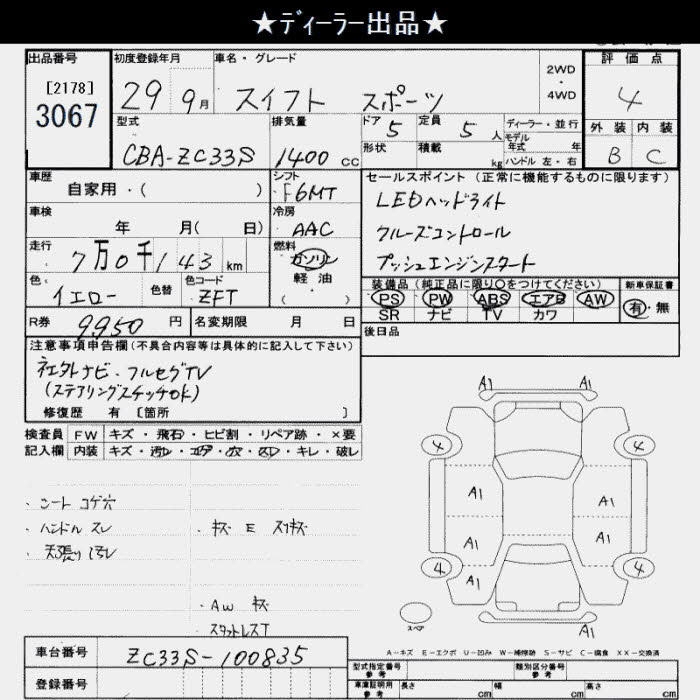 ★ディーラー出品★
出品番号 初度登録年月 車名・グレード 2WD・4WD 評価点
[2178]
3067 29 9月 スイフト スポーツ 4
型式 排気量 ドア 5 定員 5人 ディーラー・並行 外装 内装
CBA-ZC33S 1400cc 形状 積載 kg モデル年式 年 ハンドル 左・右 B C
車歴 シフト セールスポイント (正常に機能するものに限ります)
自家用・( ) F6MT LEDヘッドライト
車検 冷房 クルーズコントロール
年 月( 日) AAC プッシュエンジンスタート
走行 燃料
7万0千143km ガソリン
色 色替 色コード 軽油 装備品(純正品に限り○をつけてください) 新車保証書
イエロー ZFT ・( ) PS PW ABS エアB AW 有・無
SR ナビ TV カワ
R券 9950円 名変期限 月 日 後日品
注意事項申告欄(不具合内容等は具体的に記入して下さい)
社外ナビ・フルセグTV
(ステアリングスイッチOK)
修復歴 有 [箇所 ]
検査員 FW キズ・飛石・ヒビ割・リペア跡・×要
記入欄 内装 キズ・汚レ・コゲ・穴・スレ・キレ・破レ
・シート コゲ穴
・ハンドル スレ ・キズ E スリキズ
・天張り汚レ
・AW キズ
・スタットレスT
A1 A1
4 4
A1 A1
A1 A1
4 4
A1
スペア A1
A-キズ E-エクボ U-凹み W-補修跡 S-サビ C-腐食 XX-交換済
車台番号 ZC33S-100835
登録番号
型式指定番号 参考 類別区分番号 参考
車庫証明用 参考 長さ cm 幅 cm 高さ cm